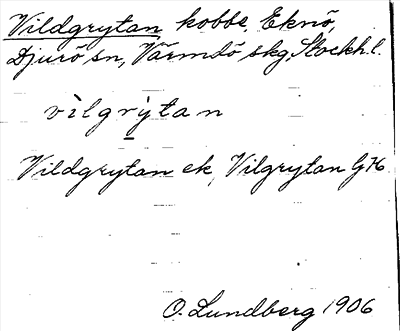 Vildgrytan kobbe, Eknö,
Djurö sn, Värmdö skg, Stockh. l.
vìlgrỳtan
Vildgrytan ek, Vilgrytan GK
O. Lundberg 1906